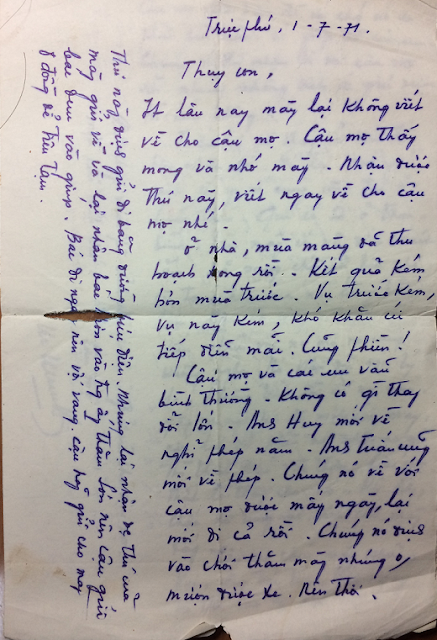 Triệu phú, 1-7-71.
Thuy con,
Ít lâu nay mày lại không viết
về cho cậu mợ. Cậu mợ thấy
mong và nhớ mày. Nhận được
Thư này, viết ngay về cho cậu
mợ nhé.
Ở nhà, mùa màng đã thu
hoạch xong rồi. Kết quả kém
hơn mùa trước. Vụ trước kém,
vụ này kém, khó khăn cứ
tiếp diễn mãi. Cũng phiền!
Cậu mợ và các em vẫn
bình thường. Không có gì thay
đổi lớn. Anh Huy mới về
nghỉ phép năm. Anh Tuấn cũng
mới về phép. Chúng nó về với
cậu mợ được mấy ngày, lại
mới đi cả rồi. Chúng nó định
vào chơi thăm mày nhưng o,
mượn được xe. Nên thôi.
Thư này, định gửi đi bằng đường bưu điện. Nhưng lại nhận được thư của
mày gửi về và lại nhân bác vào ấy thăm nên cậu gửi
bác đem vào giúp. Bác đi ngay nên vội vàng. cậu gửi cho mày